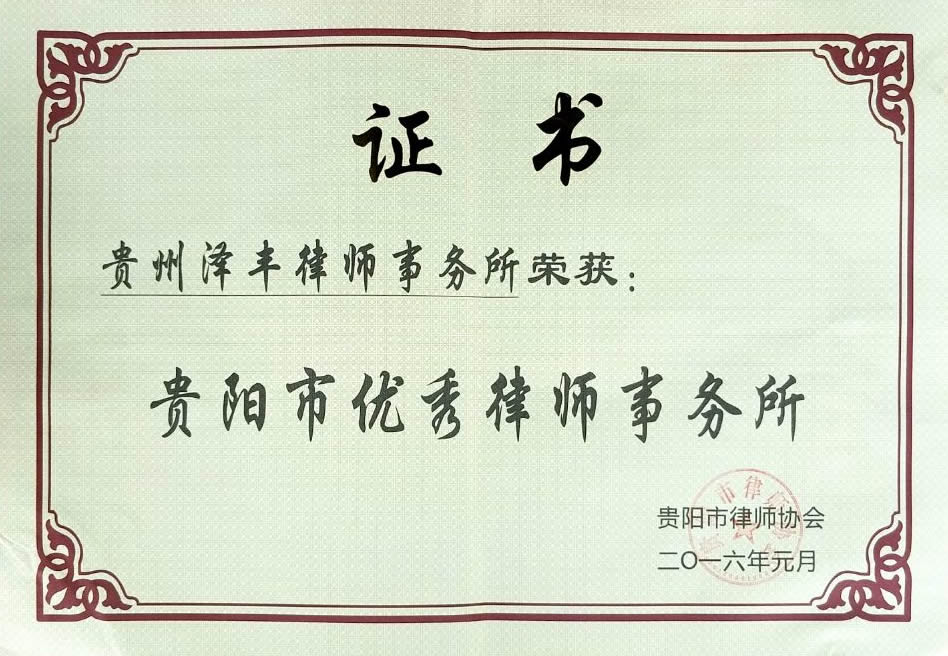 证书
贵州泽丰律师事务所荣获：
贵阳市优秀律师事务所
贵阳市律师协会
二〇一六年元月